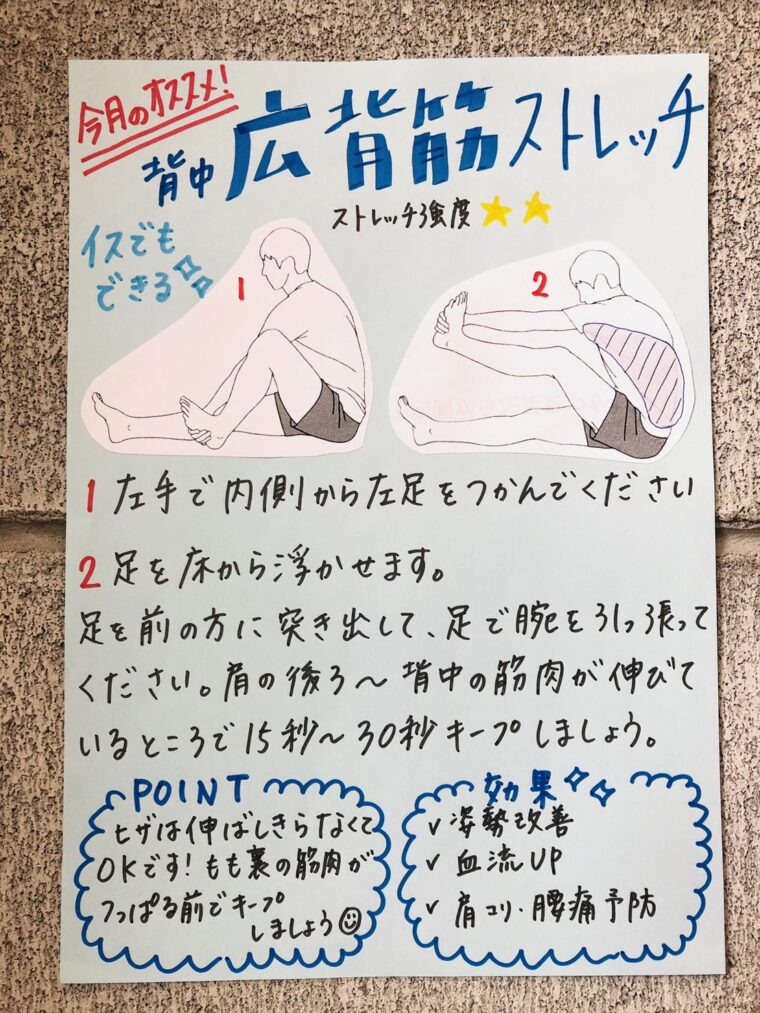 今月のオススメ!
背中 広背筋ストレッチ
ストレッチ強度
イスでも
できる
1
2
1 左手で内側から左足をつかんでください
2 足を床から浮かせます。
足を前の方に突き出して、足で腕を引っ張って
ください。肩の後ろ～背中の筋肉が伸びて
いるところで15秒～30秒キープしましょう。
POINT
ヒザは伸ばしきらなくて
OKです!もも裏の筋肉が
つっぱる前でキープ
しましょう
効果
✓ 姿勢改善
✓ 血流UP
✓ 肩コリ・腰痛予防